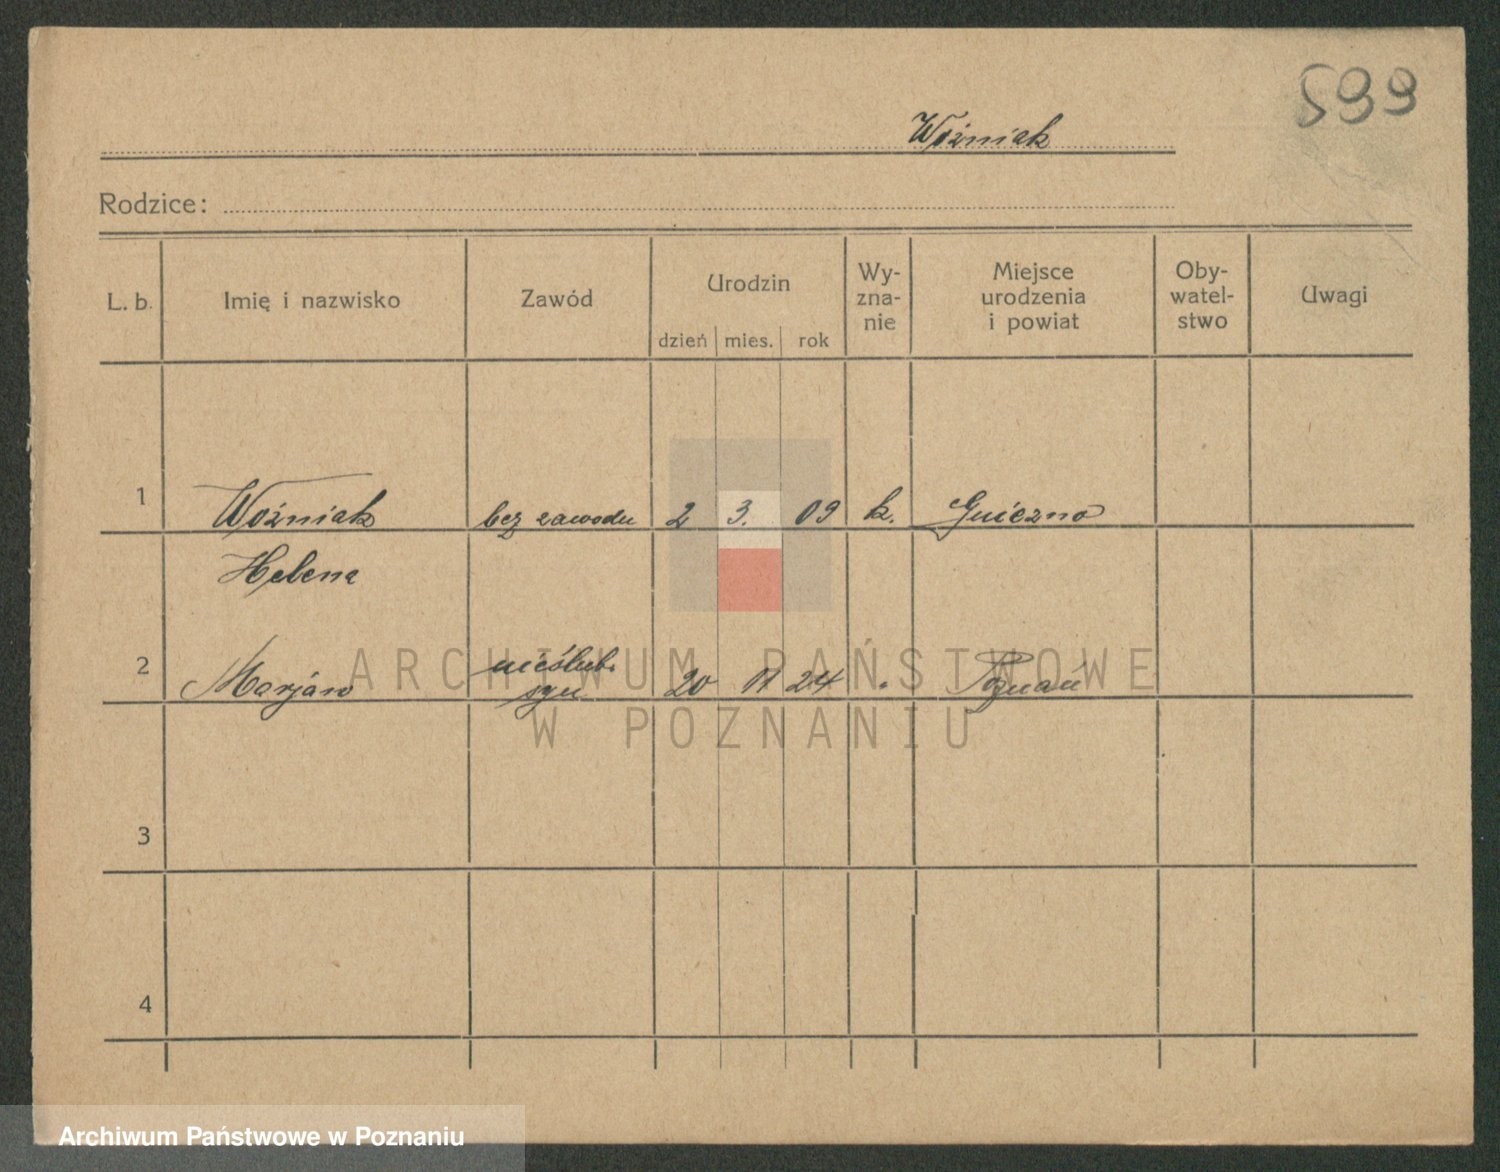 599
Woźniak
Rodzice:
L. b. Imię i nazwisko Zawód Urodzin dzień mies. rok Wy-zna-nie Miejsce urodzenia i powiat Oby-watel-stwo Uwagi
1 Woźniak bez zawodu 2 3. 09 k. Gniezno
Helena
nieślub.
2 Marjan syn 20 11 24 " Poznań
ARCHIWUM PAŃSTWOWE
W POZNANIU
3
4
Archiwum Państwowe w Poznaniu